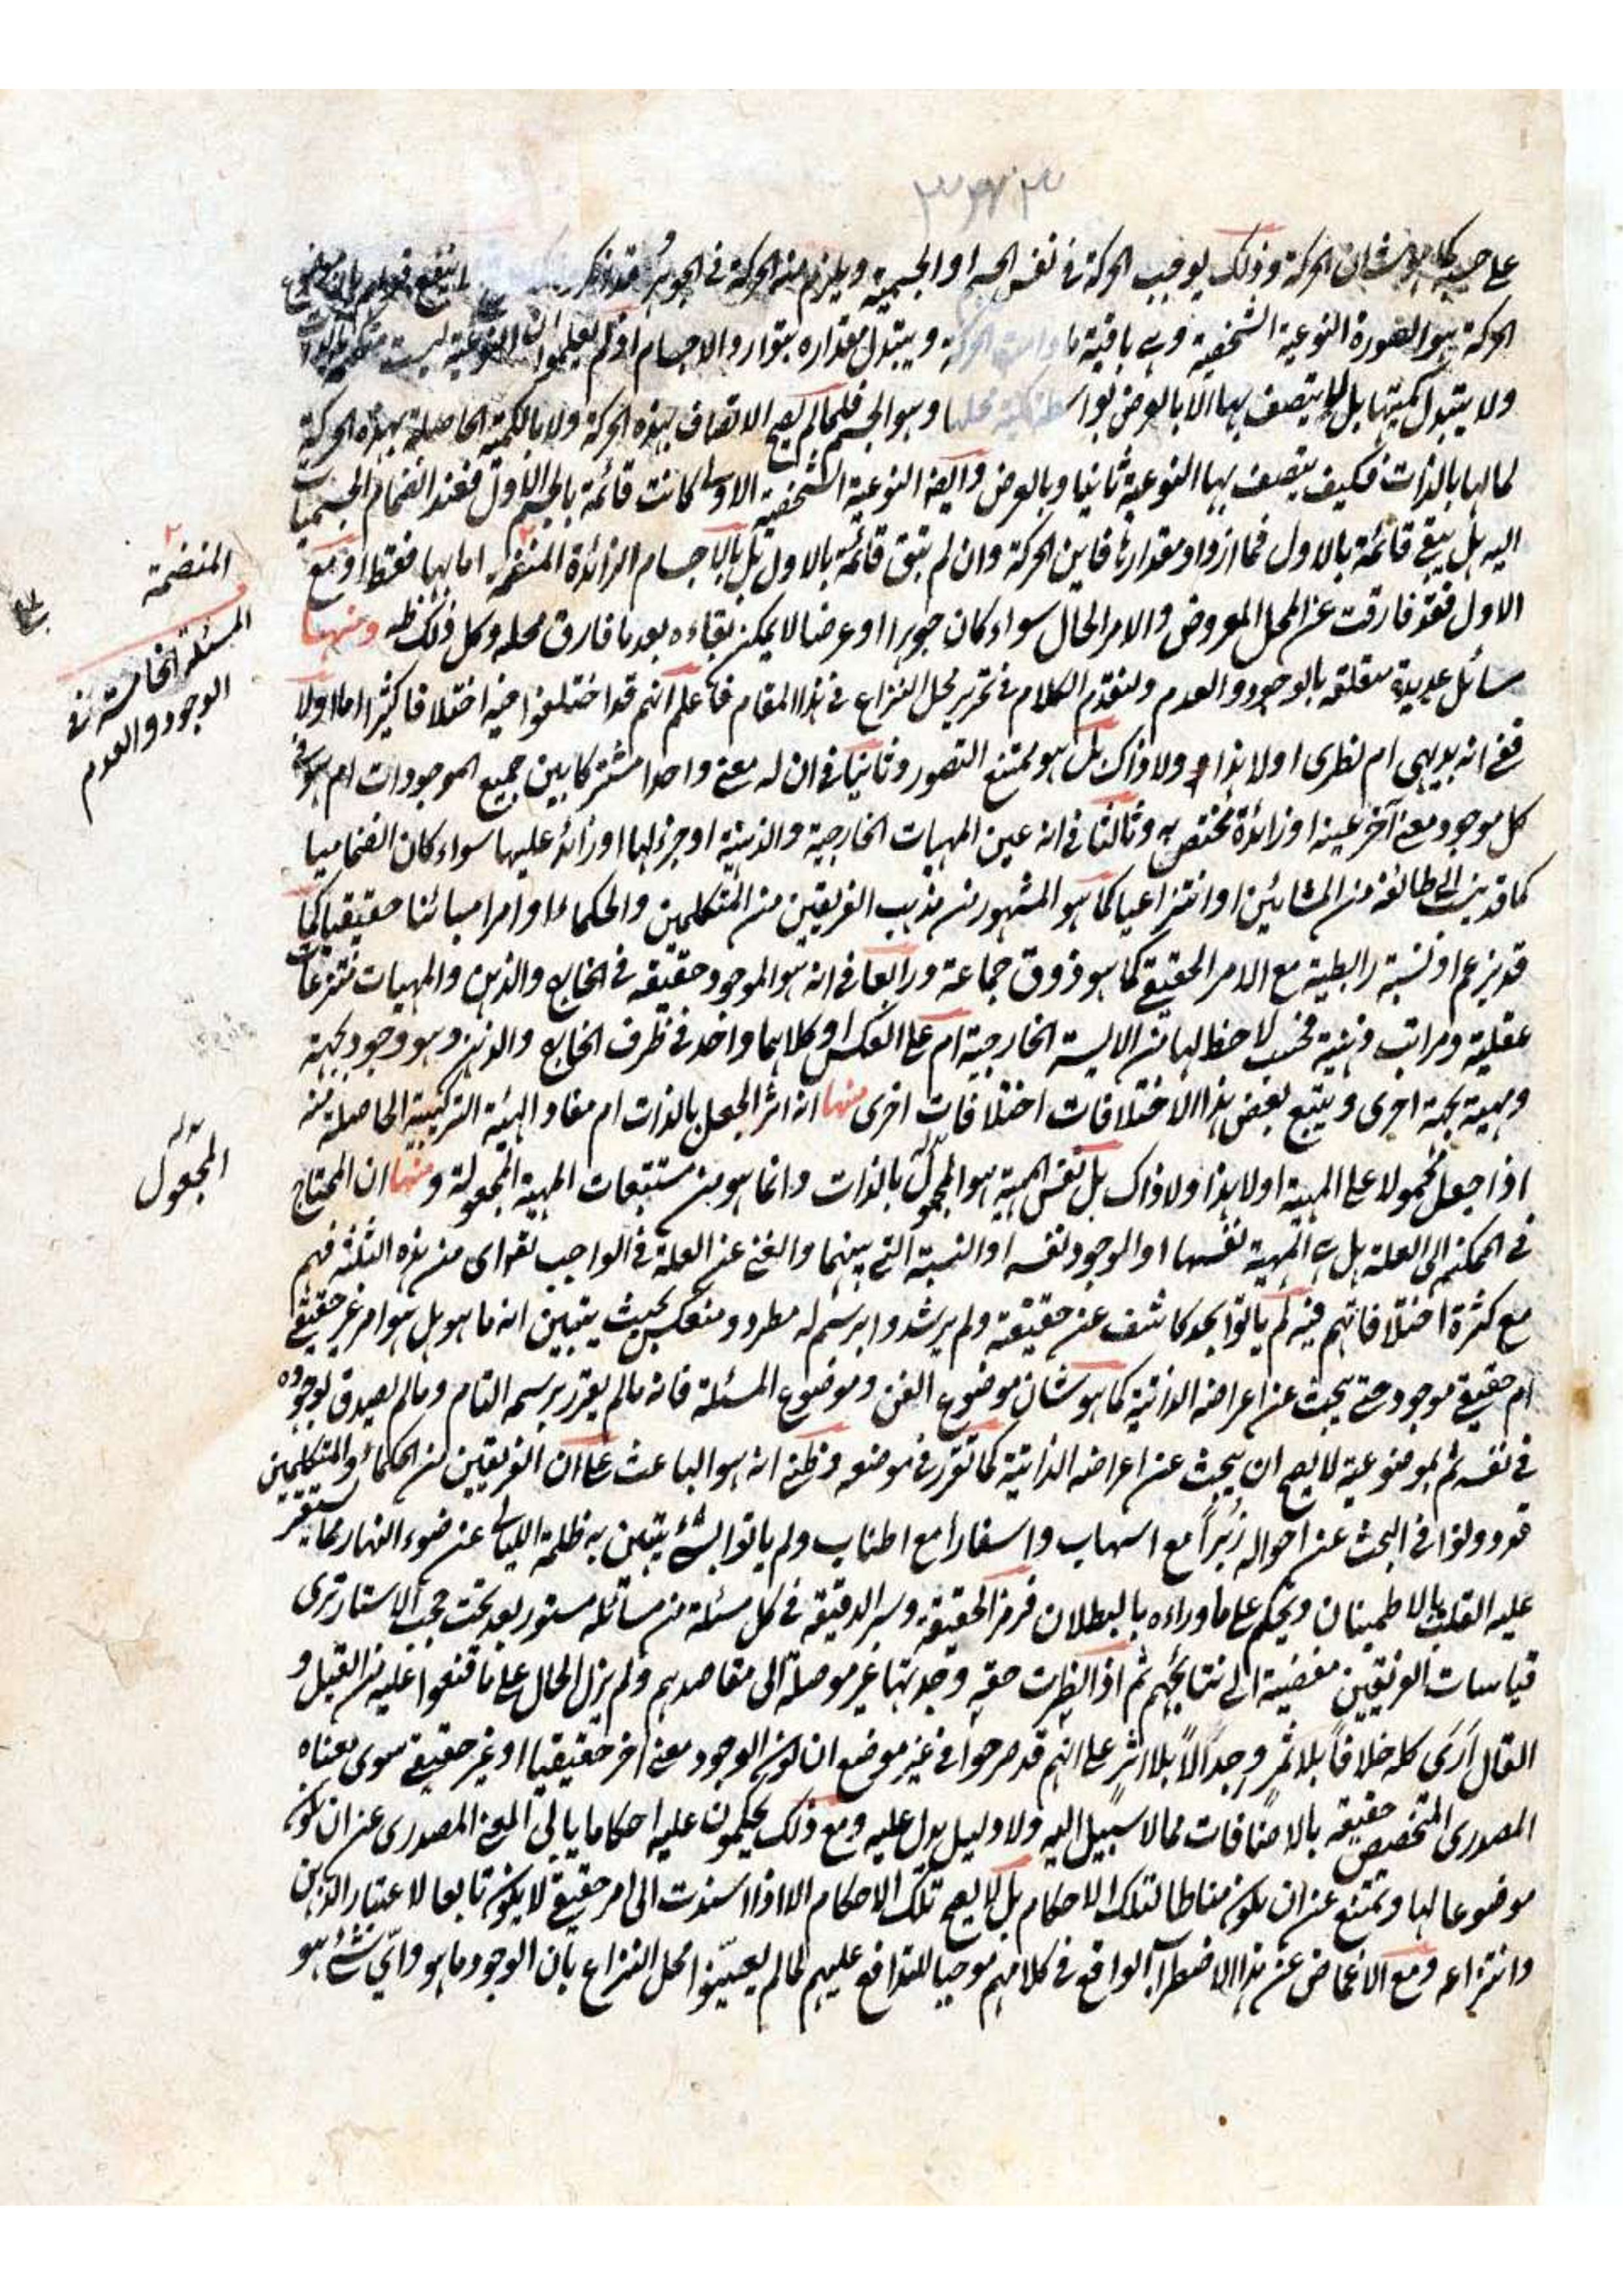 على حد كما هو شان الحركة وذلك يوجب الحركة فى نفس الجسم او الجسمية ويلزم منه الحركة فى الجوهر وقد
الحركة هو الصورة النوعية الشخصية وهى باقية ما دامت الحركة ويتبدل مقداره بتوارد الاجسام او لم يعلموا ان النوعية ليست
ولا يتبدل كميتها بل لا يتصف بها الا بالعرض بواسطة كمية محلها وهو الجسم فلما لم يصح الاتصاف بهذه الحركة ولا بالكمية الحاصلة بهذه الحركة
لمالها بالذات فكيف يتصف بها النوعية ثانيا وبالعرض وايضا النوعية الشخصية الاولى كانت قائمة بالجسم الاول فعند انضمام الجسميات
اليه هل يبقى قائمة بالاول فما ازداد مقدارها فاين الحركة وان لم تبق قائمة بالاول بل بالاجسام الزائدة المنضمة اما بها فقط او مع
الاول فقد فارقت عن المحل المعروض والامر الحال سواء كان جوهرا او عرضا لا يمكن بقاءه بعد ما فارق محله وكل ذلك ظه ومنها
مسائل عديدة متعلقة بالوجود والعدم ولنقدم الكلام فى تحرير محل النزاع فى هذا المقام فاعلم انهم قد اختلفوا فيه اختلافا كثيرا اما اولا
ففى انه بديهى ام نظرى او لا هذا ولا ذاك بل هو ممتنع التصور وثانيا فى ان له معنى واحدا مشتركا بين جميع الموجودات ام هو فى
كل موجود معنى آخر عينه او زائدة مختص به وثالثا فى انه عين المهيات الخارجية والذهنية او جزء لها او زائد عليها سواء كان انضماميا
كما قد ينسب الى طائفة من المشائين او انتزاعيا كما هو المشهور من مذهب الفريقين من المتكلمين والحكماء او امرا مبائنا حقيقيا كما
قد يزعم او نسبة رابطية مع الامر الحقيقى كما هو ذوق جماعة ورابعا فى انه هو الموجود حقيقة فى الخارج والذهن والمهيات منتزعات
عقلية ومراتب ذهنية فحسب لا حظ لها من الايسة الخارجية ام على العكس او كلاهما واحد فى ظرف الخارج والذهن وهو وجود بجهة
ومهية بجهة اخرى ويتبع بعض هذا الاختلافات اختلافات اخرى منها انه اثر الجعل بالذات ام مفاد الهيئة التركيبية الحاصلة منه
اذا جعل محمولا على المهية او لا هذا ولا ذاك بل نفس المهية هو المجعول بالذات وانما هو من مستتبعات المهية المجعولة ومنها ان المحتاج
فى الممكنات الى العلة هل هى المهية نفسها او الوجود نفسه او النسبة التى بينهما والغنى عن العلة فى الواجب تعالى اى من هذه الثلثة فهم
مع كثرة اختلافاتهم فيه لم يأتوا بحد كاشف عن حقيقته ولم يرشدوا برسم له مطرد ومنعكس بحيث يتبين انه ما هو بل هو امر غير حقيقى
ام حقيقى موجود حتى يبحث عن اعراضه الذاتية كما هو شان موضوع الفن وموضوع المسئلة فانه مالم يقرر برسمه التام ومالم يصدق بوجوده
فى نفسه ثم بموضوعيته لا يصح ان يبحث عن اعراضه الذاتية كما تقرر فى موضعه وظنى انه هو الباعث على ان الفريقين من الحكماء والمتكلمين
قد دونوا فى البحث عن احواله زبرا مع اسهاب واسفارا مع اطناب ولم ياتوا بشئ يتبين به ظلمة الليالى عن ضوء النهار مما يستقر
عليه القلب بالاطمينان ويحكم على ما وراءه بالبطلان فرمز الحقيقة وسر الدقيقة فى كل مسئلة من مسائله مستور بعد تحت حجب الاستار ترى
قياسات الفريقين مفضية الى نتائجهم ثم اذا نظرت حقه وجدتها غير موصلة الى مقاصدهم ولم يزل الحال على ما قنعوا عليه من القيل و
القال ارى كله خلافا بلا ثمر وجدالا بلا اثر على انهم قد صرحوا فى غير موضع ان كون الوجود معنى اخر حقيقيا او غير حقيقى سوى معناه
المصدرى المتخصص حقيقة بالاضافات مما لا سبيل اليه ولا دليل يدل عليه ومع ذلك يحكمون عليه احكاما يابى المعنى المصدرى عن ان يكون
موضوعا لها ويمتنع عن ان يكون مناطا لتلك الاحكام بل لا يصح تلك الاحكام الا اذا اسندت الى امر حقيقى لا يكون تابعا لاعتبار الذهن
وانتزاعه ومع الاغماض عن هذا الاضطراب الواقع فى كلامهم موجبا للتدافع عليهم لما لم يعينوا محل النزاع بان الوجود ما هو واى شئ هو
المنضمة
المسئلة الخامسة فى
الوجود والعدم
المجعول